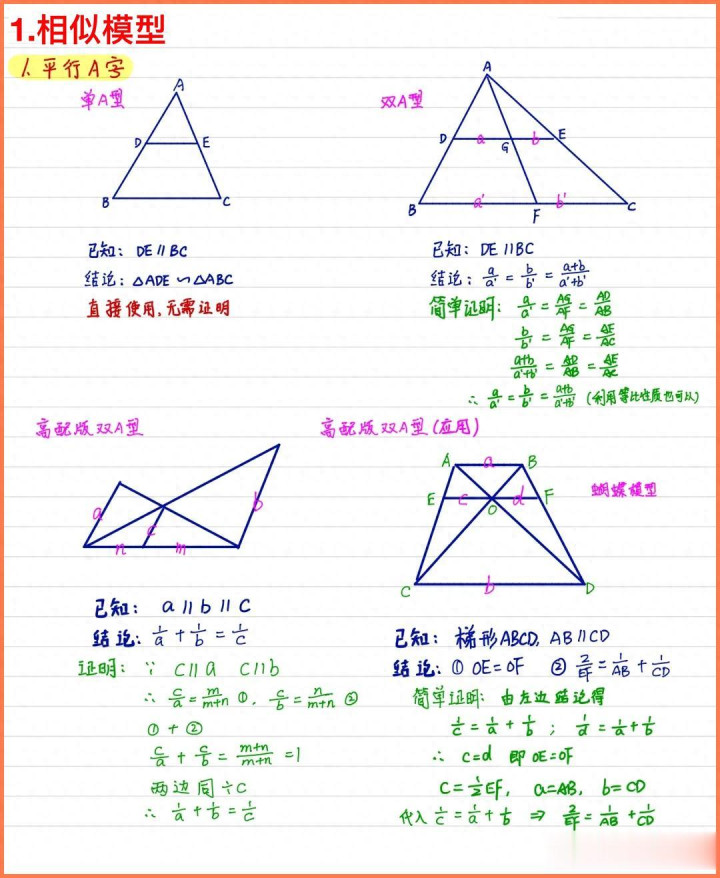 1.相似模型
1.平行A字
单A型
A
D E
B C
已知: DE∥BC
结论: △ADE∽△ABC
直接使用,无需证明
双A型
A
D a G b E
B a' F b' C
已知: DE∥BC
结论: a/a' = b/b' = a+b/a'+b'
简单证明: a/a' = AG/AF = AD/AB
b/b' = AG/AF = AE/AC
a+b/a'+b' = AD/AB = AE/AC
∴ a/a' = b/b' = a+b/a'+b' (利用等比性质也可以)
高配版双A型
a c b
n m
已知: a∥b∥c
结论: 1/a + 1/b = 1/c
证明: ∵ c∥a c∥b
∴ c/a = m/m+n ①, c/b = n/m+n ②
① + ②
c/a + c/b = m+n/m+n = 1
两边同÷c
∴ 1/a + 1/b = 1/c
高配版双A型(应用)
A a B
E c O d F
蝴蝶模型
C b D
已知: 梯形ABCD, AB∥CD
结论: ① OE=OF ② 2/EF = 1/AB + 1/CD
简单证明: 由左边结论得
1/c = 1/a + 1/b ; 1/d = 1/a + 1/b
∴ c=d 即OE=OF
C=1/2EF, a=AB, b=CD
代入 1/c = 1/a + 1/b ⇒ 2/EF = 1/AB + 1/CD